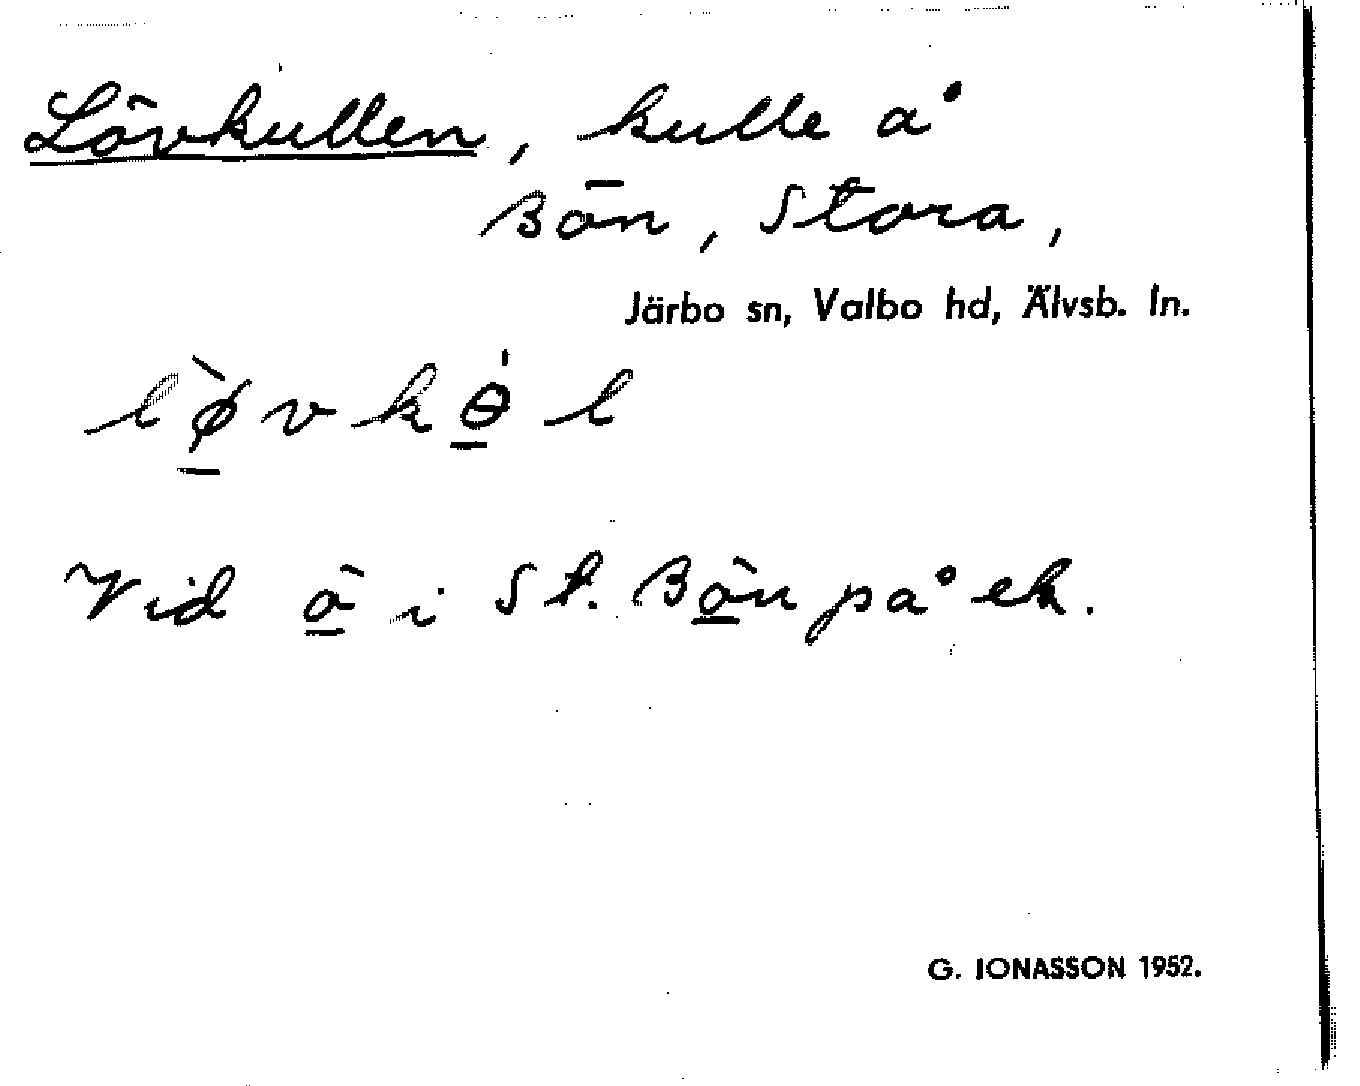 Lövkullen, kulle å
Bön, Stora,
Järbo sn, Valbo hd, Älvsb. ln.
lø̀vkɵ̍l
Vid ö i St. Bön på ek.
G. IONASSON 1952.